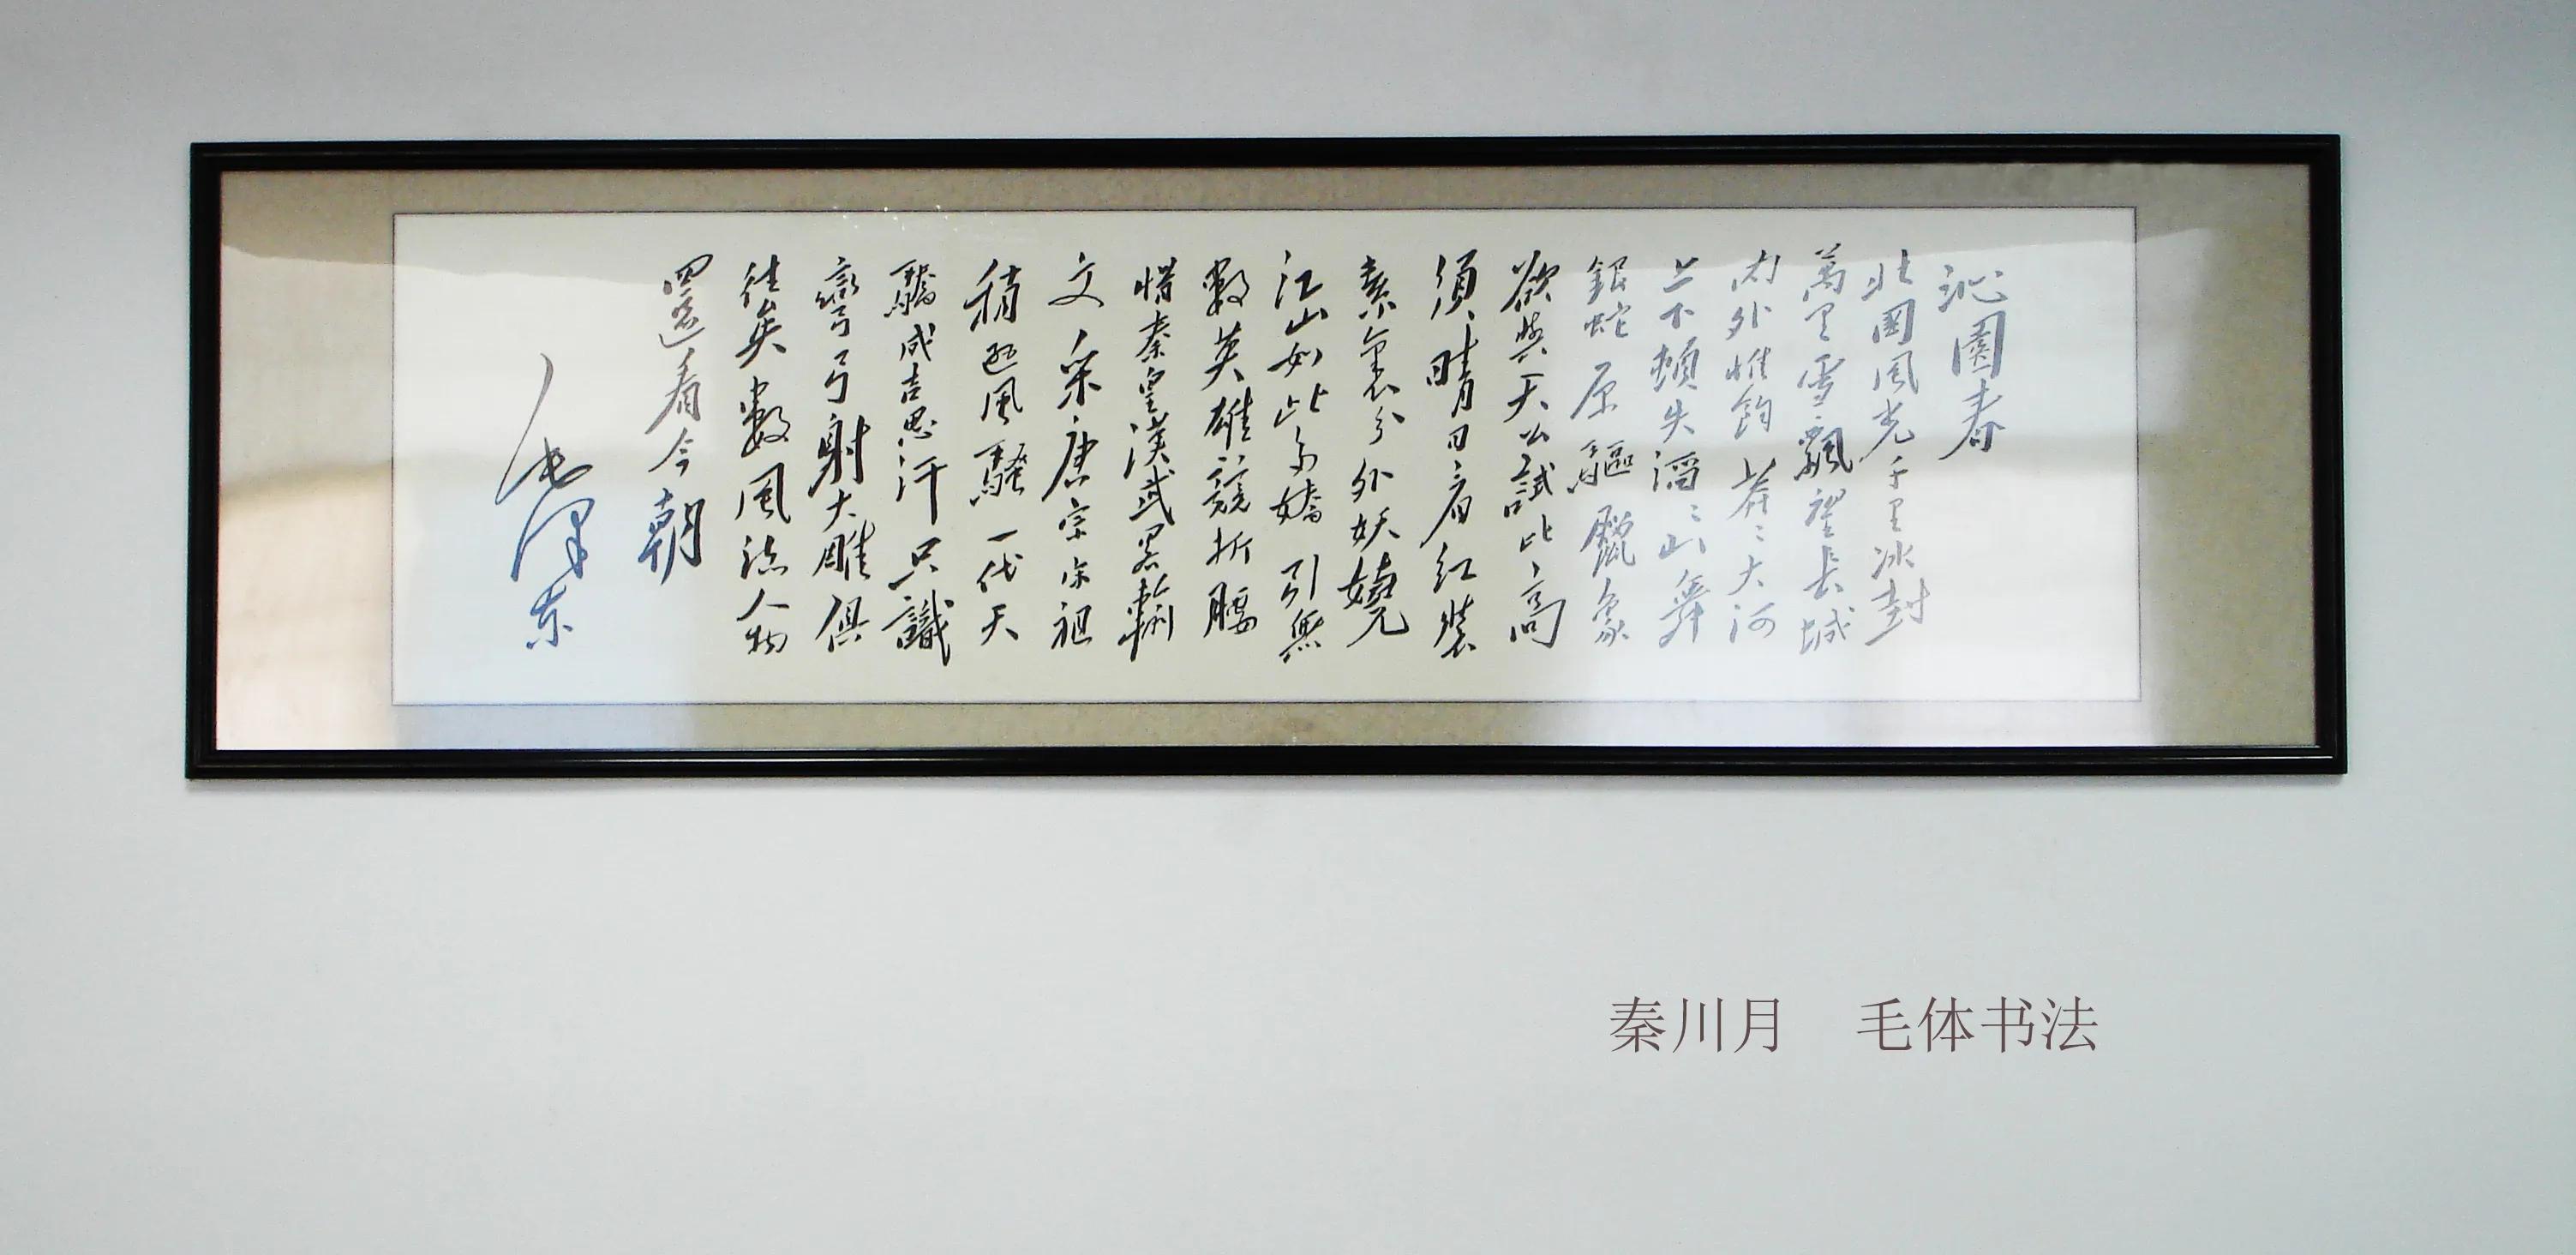 沁園春
北國風光千里冰封
萬里雪飄望長城
内外惟餘莽〻大河
上下頓失滔〻山舞
銀蛇原驅臘象
欲與天公試比高
須晴日看紅裝
素裹分外妖嬈
江山如此多嬌引無
數英雄競折腰
惜秦皇漢武略輸
文采唐宗宋祖
稍遜風騷一代天
驕成吉思汗只識
彎弓射大雕俱
往矣數風流人物
還看今朝
毛澤東
秦川月 毛体书法